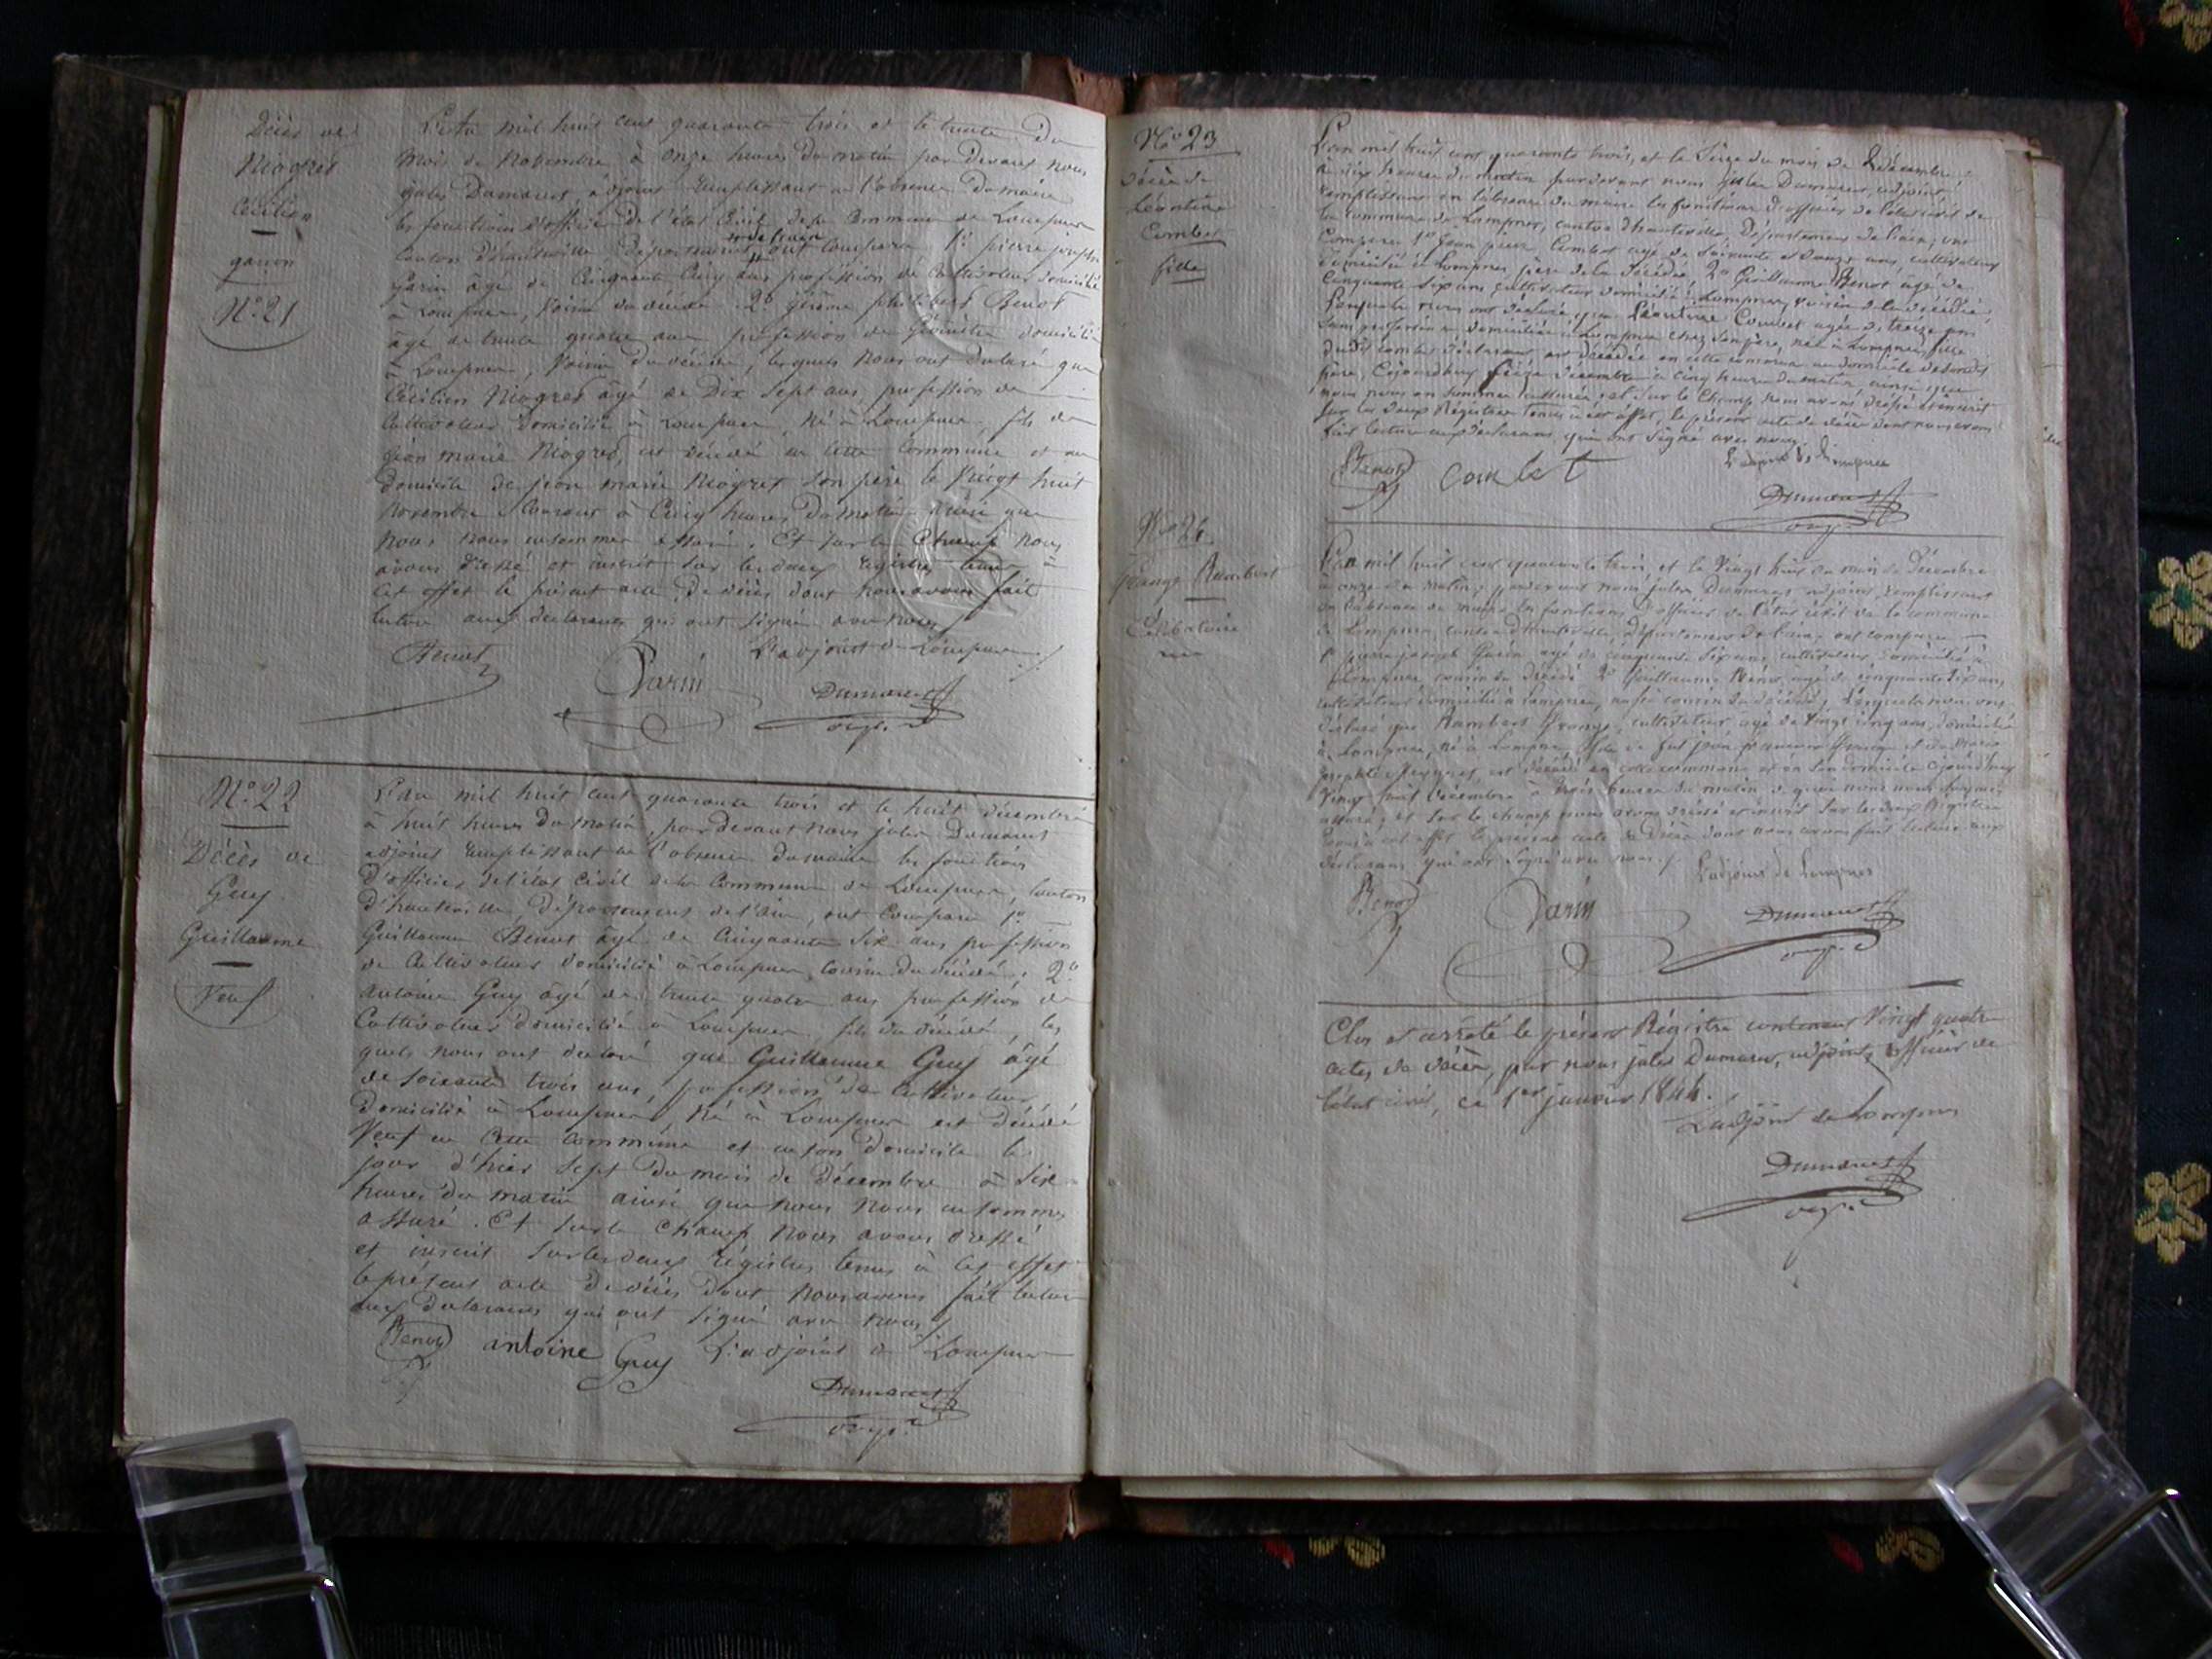 Décès de
Niogret
Cécilien
garçon
N°. 21
L'an mil huit cent quarante trois et le trente du
mois de Novembre à onze heures du matin par devant nous
jules Dumarest adjoint remplissant en l'absence du maire
les fonctions d'officier de l'état civil de la Commune de Lompnes
canton d'hauteville, département de l'ain ont comparu 1° pierre joseph
garin âgé de Cinquante Cinq ans profession de Cultivateur domicilié
à Lompnes, Voisin du décédé 2° gérôme philibert Benot
âgé de trente quatre ans profession de Géomètre domicilié
à Lompnes, Voisin du décédé, lesquels nous ont déclaré que
Cécilien Niogret âgé de Dix Sept ans profession de
Cultivateur domicilié à Lompnes, Né à Lompnes, fils de
jean marie Niogret, est décédé en cette commune et au
domicile de jean marie Niogret son père le Vingt huit
Novembre Courant à Cinq heures du matin ainsi que
Nous nous en sommes assuré. Et sur le Champ Nous
avons dressé et inscrit sur les deux registres tenus à
cet effet le présent acte de décès dont nous avons fait
lecture aux déclarants qui ont signé avec nous
Benot Garin L'adjoint de Lompnes
Dumarest
N°. 22
Décès de
Guy
Guillaume
Veuf
L'an mil huit cent quarante trois et le huit décembre
à huit heures du matin, par devant nous jules Dumarest
adjoint remplissant en l'absence du maire les fonctions
d'officier de l'état civil de la Commune de Lompnes, canton
d'hauteville, Département de l'ain, ont Comparu 1°
Guillaume Benot âgé de Cinquante Six ans profession
de Cultivateur domicilié à Lompnes, cousin du décédé, 2°
Antoine Guy âgé de trente quatre ans profession de
Cultivateur domicilié à Lompnes, fils du décédé, les
quels nous ont déclaré que Guillaume Guy âgé
de soixante trois ans, profession de Cultivateur
domicilié à Lompnes, Né à Lompnes est décédé
Veuf en Cette commune et en son domicile le
jour d'hier Sept du mois de Décembre à Six
heures du matin ainsi que nous nous en sommes
assuré. Et sur le Champ Nous avons dressé
et inscrit sur les deux registres tenus à cet effet
le présent acte de décès dont nous avons fait lecture
aux déclarants qui ont signé avec nous
Benot antoine Guy L'adjoint de Lompnes
Dumarest
N° 23
Décès de
Léontine
Combet
fille
L'an mil huit cent quarante trois, et le Seize du mois de Décembre
à dix heures du matin par devant nous Jules Dumarest, adjoint
remplissant en l'absence du maire les fonctions d'officier de l'état civil de
la commune de Lompnes, canton d'hauteville, Département de l'ain, ont
Comparu 1° Jean pierre Combet agé de Soixante et douze ans, cultivateur
domicilié à Lompnes père de la décédée, 2° Guillaume Benot, agé de
Cinquante Six ans, cultivateur domicilié à Lompnes, voisin de la décédée,
Lesquels nous ont déclaré que Léontine Combet agée de treize ans
sans profession domiciliée à Lompnes chez son père, née à Lompnes, fille
dudit combet déclarant, est décédée en cette commune au domicile de son dit
père, Cejourd'huy Seize décembre à cinq heures du matin, ainsi que
nous nous en sommes assuré, et sur le Champ nous avons dressé et inscrit
sur les deux Régistres tenus à cet effet, le présent acte de décès dont nous avons
fait lecture aux déclarans, qui ont signé avec nous.
Benot Combet L'adjoint de Lompnes
Dumarest
N° 24
Grange Rambert
Célibataire
L'an mil huit cent quarante trois, et le Vingt huit du mois de Décembre
à onze du matin, par devant nous jules Dumarest adjoint, remplissant
en l'absence du maire les fonctions d'officier de l'état civil de la commune
de Lompnes, canton d'hauteville, Département de l'ain, ont comparu
1° pierre joseph Garin agé de cinquante six ans, cultivateur, domicilié à
Lompnes, cousin du décédé 2° Guillaume Benot, agé de cinquante six ans,
cultivateur domicilié à Lompnes, aussi cousin du décédé, Lesquels nous ont
déclaré que Rambert Grange, cultivateur, agé de Vingt cinq ans, domicilié
à Lompnes, né à Lompnes, fils de fut jean françois Grange et de Marie
josephte, est décédé en cette commune et en son domicile Cejourd'huy
Vingt huit Décembre à trois heures du matin, de quoi nous nous sommes
assuré, et sur le champ nous avons dressé et inscrit sur les deux Régistres
tenus à cet effet le présent acte de décès dont nous avons fait lecture aux
déclarans, qui ont signé avec nous.
Benot Garin L'adjoint de Lompnes
Dumarest
Clos et arrêté le présent Régistre contenant Vingt quatre
actes de décès, par nous jules Dumarest, adjoint, officier de
l'état civil, ce 1er janvier 1844.
L'adjoint de Lompnes
Dumarest